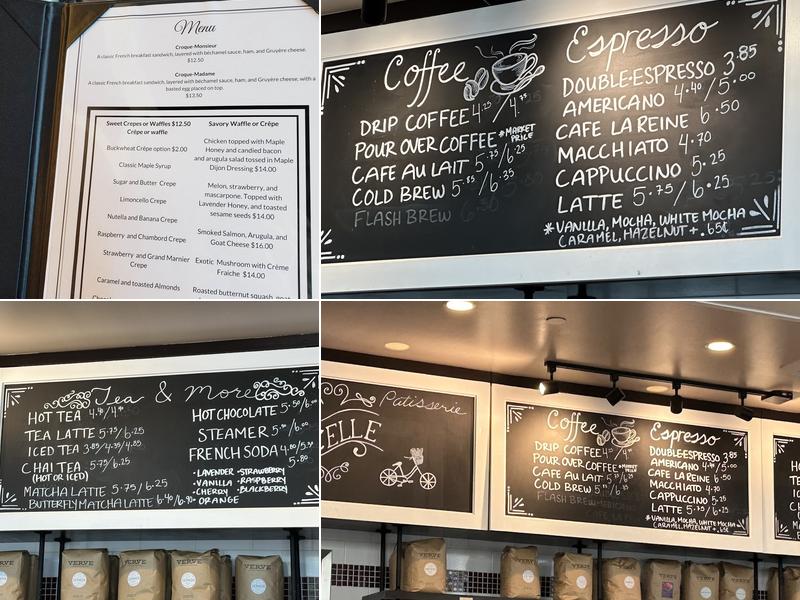 Menu
Croque-Monsieur
A classic French breakfast sandwich, layered with béchamel sauce, ham, and Gruyère cheese.
$12.50
Croque-Madame
A classic French breakfast sandwich, layered with béchamel sauce, ham, and Gruyère cheese, with a
basted egg placed on top.
$13.50
Sweet Crepes or Waffles $12.50
Crêpe or waffle
Buckwheat Crêpe option $2.00
Classic Maple Syrup
Sugar and Butter Crepe
Limoncello Crepe
Nutella and Banana Crepe
Raspberry and Chambord Crepe
Strawberry and Grand Marnier
Crepe
Caramel and toasted Almonds
Savory Waffle or Crêpe
Chicken topped with Maple
Honey and candied bacon
and arugula salad tossed in Maple
Dijon Dressing $14.00
Melon, strawberry, and
mascarpone. Topped with
Lavender Honey, and toasted
sesame seeds $14.00
Smoked Salmon, Arugula, and
Goat Cheese $16.00
Exotic Mushroom with Crème
Fraiche $14.00
Roasted butternut squash, goat
Coffee
DRIP COFFEE 4.25/4.75
POUR OVER COFFEE *MARKET
PRICE
CAFE AU LAIT 5.75/6.25
COLD BREW 5.85/6.35
FLASH BREW
Espresso
DOUBLE-ESPRESSO 3.85
AMERICANO 4.40/5.00
CAFE LA REINE 6.50
MACCHIATO 4.70
CAPPUCCINO 5.25
LATTE 5.75/6.25
*VANILLA, MOCHA, WHITE MOCHA
CARAMEL, HAZELNUT + .65¢
Tea & More
HOT TEA
TEA LATTE 5.75/6.25
ICED TEA 3.85/4.35/4.85
CHAI TEA 5.75/6.25
(HOT OR ICED)
MATCHA LATTE 5.75/6.25
BUTTERFLY MATCHA LATTE
HOT CHOCOLATE
STEAMER
FRENCH SODA
5.80
•LAVENDER •STRAWBERRY
•VANILLA •RASPBERRY
•CHERRY •BLACKBERRY
•ORANGE
VERVE
VERVE
VERVE
VERVE
Patisserie
ELLE
Coffee
DRIP COFFEE
POUR OVER COFFEE *MARKET
PRICE
CAFE AU LAIT
COLD BREW
FLASH BREW
Espresso
DOUBLE-ESPRESSO 3.85
AMERICANO 4.40/5.00
CAFE LA REINE 6.50
MACCHIATO 4.70
CAPPUCCINO 5.25
LATTE 5.75/6.25
*VANILLA, MOCHA, WHITE MOCHA
CARAMEL, HAZELNUT + .65¢
VERVE